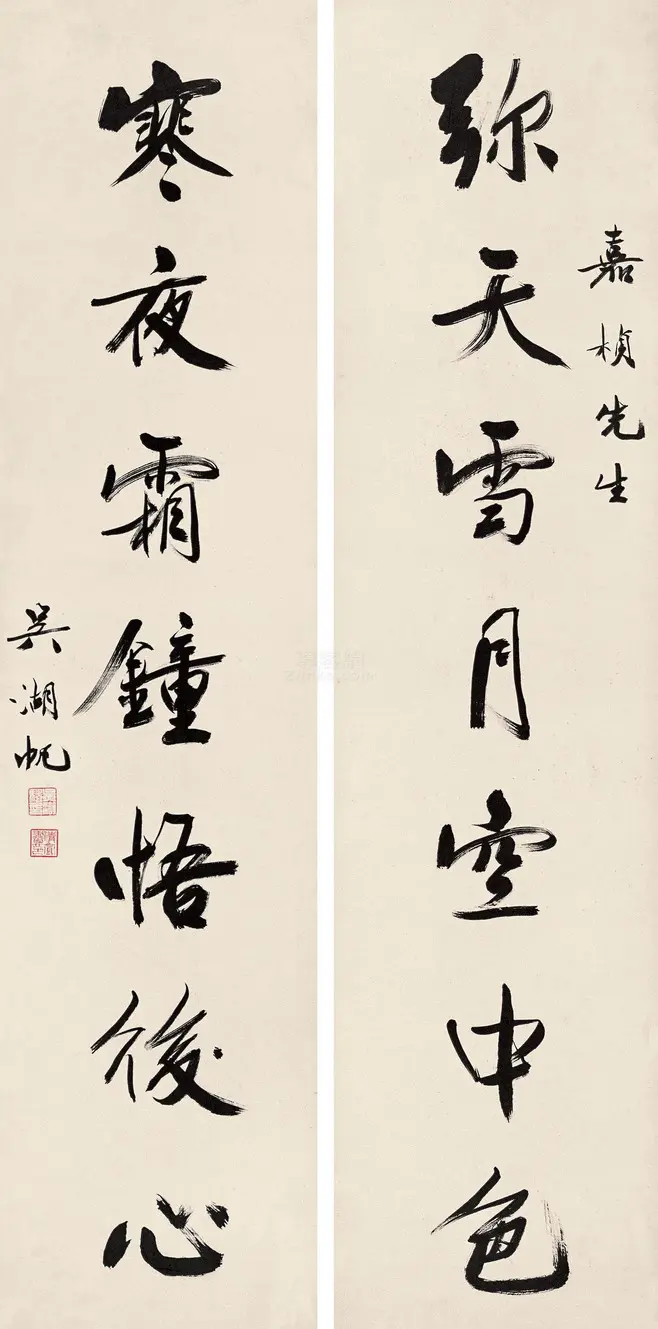 弥天雪月空中色
嘉楨先生
寒夜霜鐘悟後心
吳湖帆